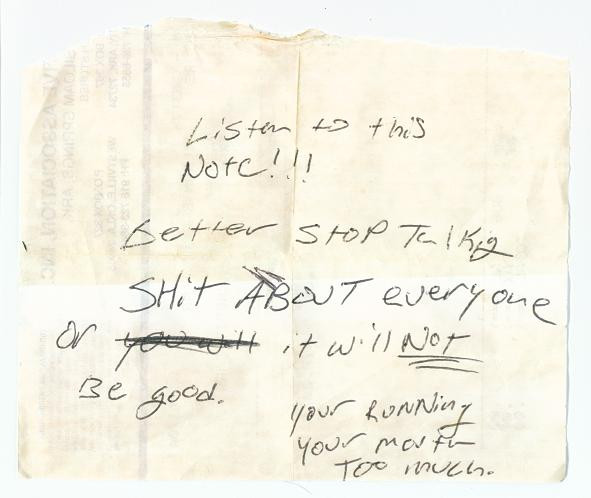 Listen to this
Note!!!
Better STOP Talkig
SHit ABOUT everyone
Or you will it will Not
Be good.
your RUNNing
your mouth
TOO much.